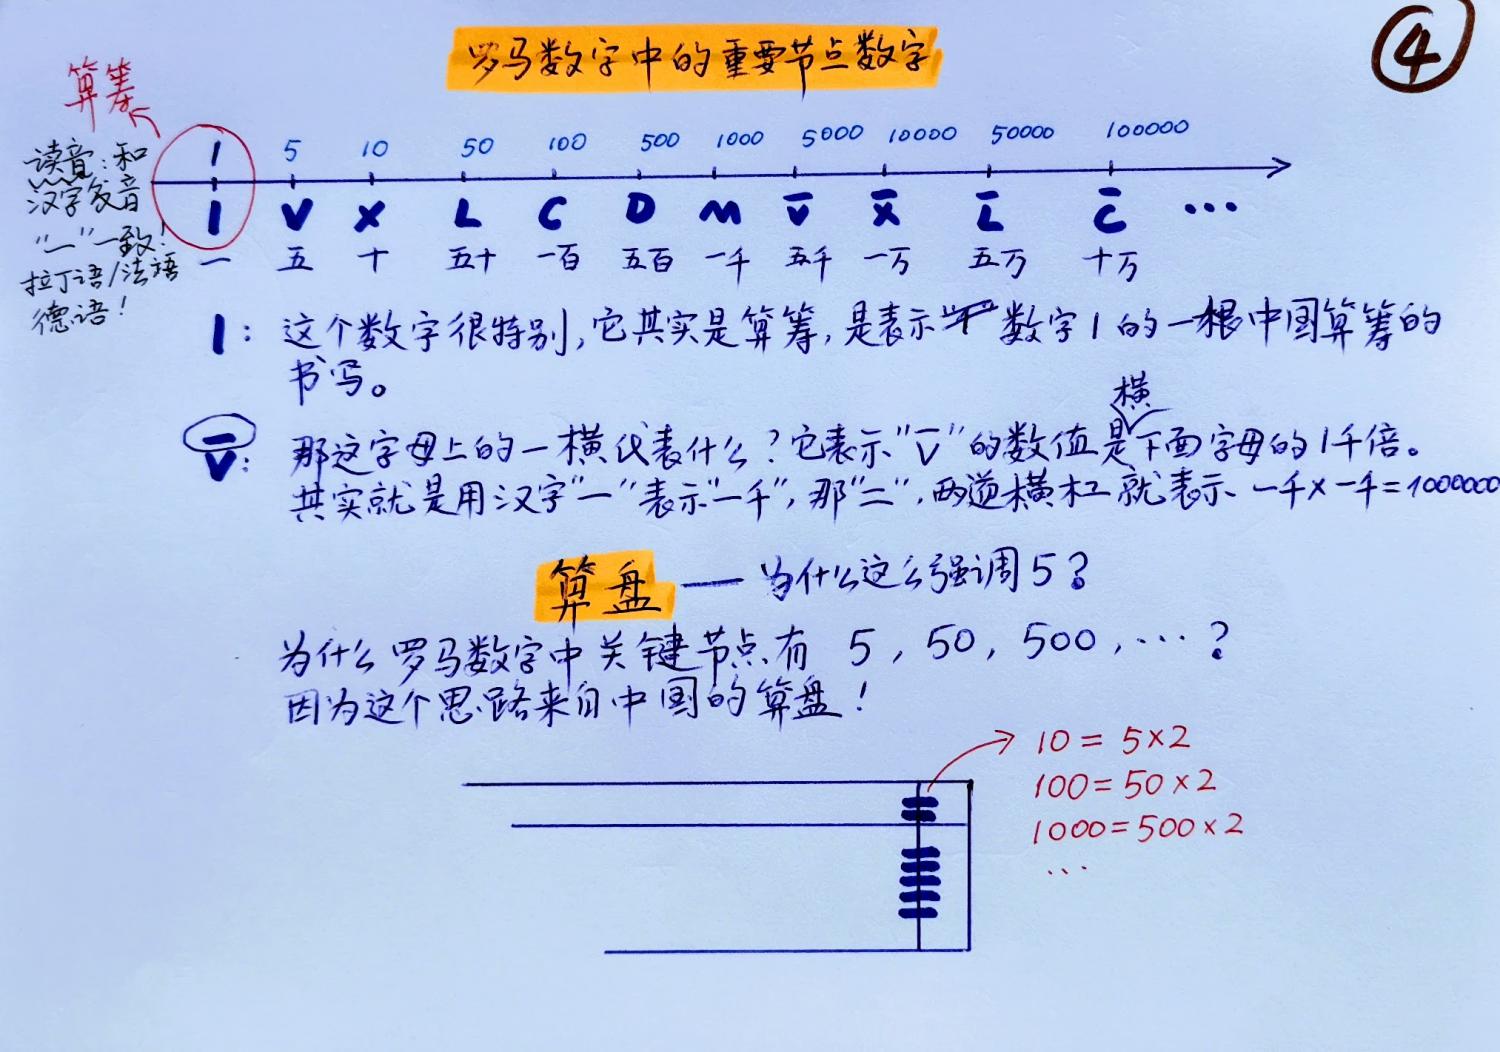 罗马数字中的重要节点数字
④
算筹
1 5 10 50 100 500 1000 5000 10000 50000 100000
I V X L C D M V̅ X̅ L̅ C̅ ···
一 五 十 五十 一百 五百 一千 五千 一万 五万 十万
读音：和
汉字发音
“一”一致！
拉丁语/法语
德语！
I：这个数字很特别，它其实是算筹，是表示数字1的一根中国算筹的
书写。
V̅：那这字母上的一横代表什么？它表示“V̅”的数值是横下面字母的1千倍。
其实就是用汉字“一”表示“一千”，那“二”，两道横杠就表示一千×一千=1000000
算盘——为什么这么强调5？
为什么罗马数字中关键节点有 5，50，500，···？
因为这个思路来自中国的算盘！
10=5×2
100=50×2
1000=500×2
···